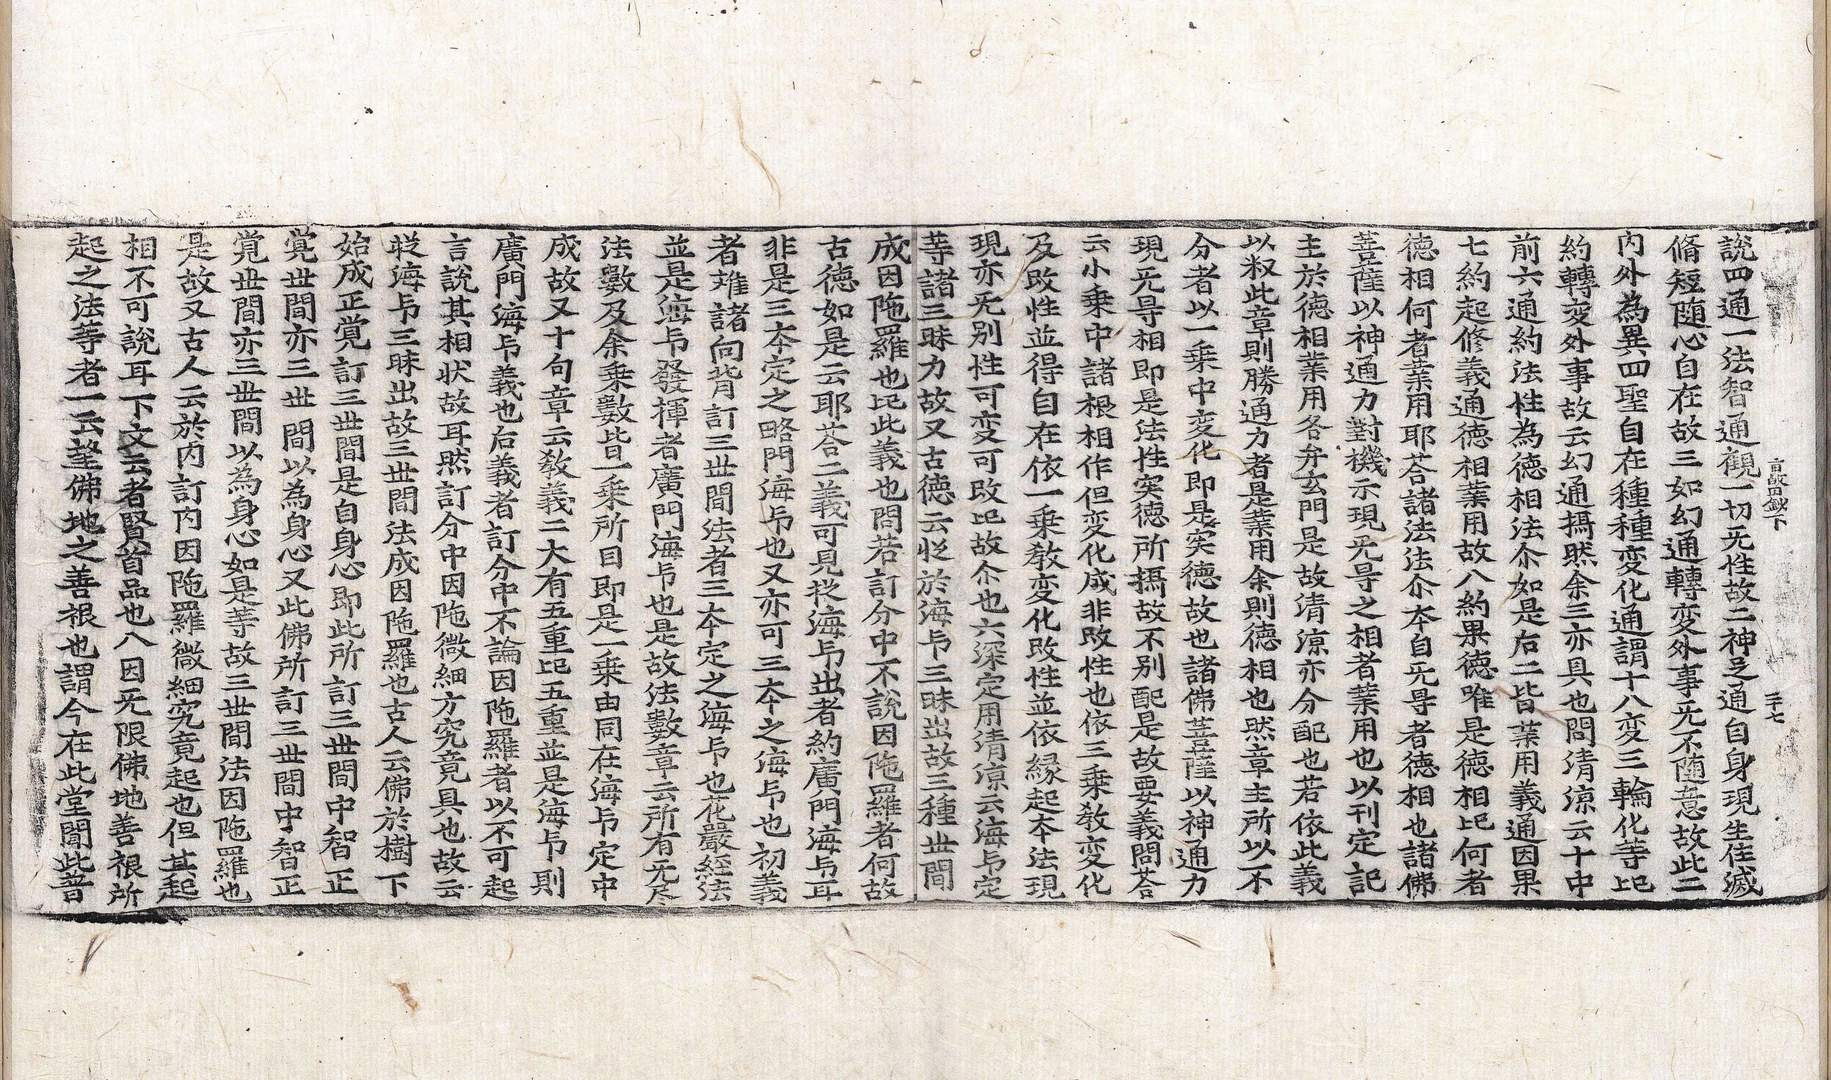 說四通一法智通觀一切无性故二神足通自身現生住滅
脩短随心自在故三如幻通轉変外事无不随意故此二
內外為異四聖自在種種変化通謂十八変三輪化等上
約轉変外事故云幻通攝然余三亦具也問清凉云十中
前六通約法性為德相法尒如是右二皆業用義通因果
七約起修義通德相業用故八約果德唯是德相上何者
德相何者業用耶荅諸法法尒夲自无㝵者德相也諸佛
菩薩以神通力對機示現无㝵之相者業用也以刊定記
主於德相業用各弁玄門是故清凉亦分配也若依此義
以判此章則勝通力者是業用余則德相也然章主所以不
分者以一乗中変化即是实德故也諸佛菩薩以神通力
現无㝵相即是法性实德所攝故不別配是故要義問荅
云小乗中諸根相作但変化成非改性也依三乗教変化
及改性並得自在依一乗教変化改性並依緣起夲法現
現亦无别性可変可改上故尒也六深定用清凉云海印定
䓁諸三昧力故又古德云從於海印三昧出故三種世間
成因陁羅也上此義也問若訂分中不說因陁羅者何故
古德如是云耶荅二義可見從海印出者約廣門海印耳
非是三夲定之略門海印也又亦可三夲之海印也初義
者雖諸向背訂三世間法者三夲定之海印也花嚴經法
並是海印發揮者廣門海印也是故法數章云所有无尽
法數及余乗數皆一乗所目即是一乗由同在海印定中
成故又十句章云教義二大有五重上五重並是海印則
廣門海印義也后義者訂分中不論因陁羅者以不可起
言說其相状故耳然訂分中因陁微細方究竟具也故云
從海印三昧出故三世間法成因陁羅也古人云佛於樹下
始成正覚訂三世間是自身心即此所訂三世間中智正
覚世間亦三世間以為身心又此佛所訂三世間中智正
覚世間亦三世間以為身心如是䓁故三世間法因陁羅也
是故又古人云於內訂內因陁羅微細究竟起也但其起
相不可說耳下文云者賢首品也八因无限佛地善根所
起之法等者一云望佛地之善根也謂今在此堂聞此普
旨歸鈔下
三十七